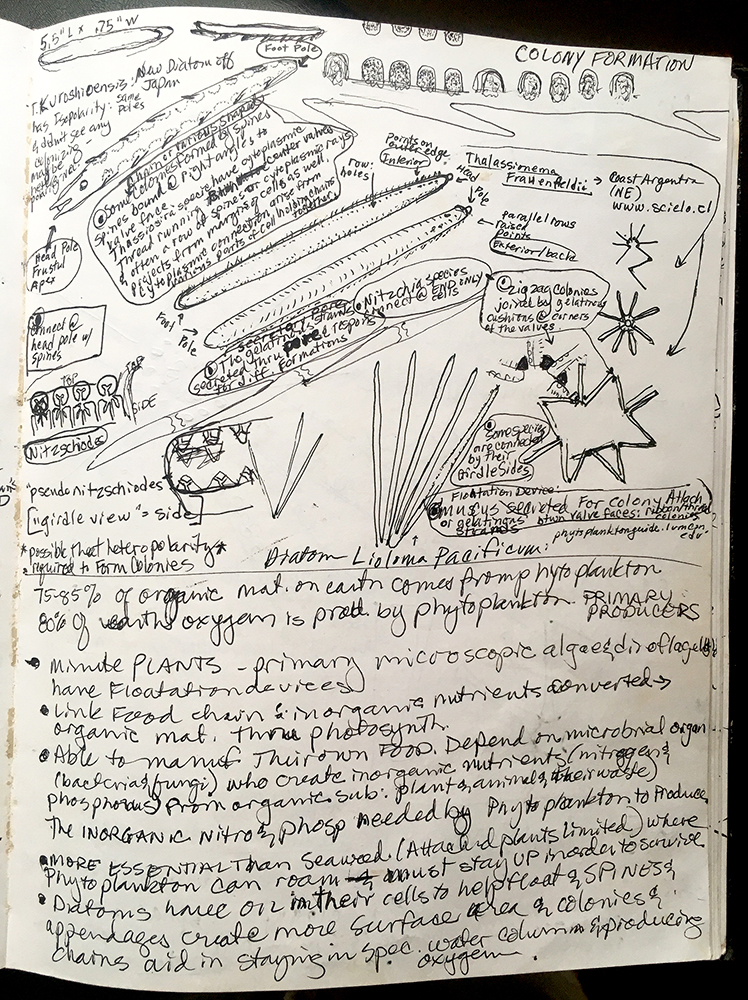 5.5" L x .75" W
Foot Pole
COLONY FORMATION
T. Kuroshioensis: New Diatom off
Japan
has Isopolarity: same
Poles
& didn't see any
colonizing
Head Pole
Frustul
Apex
Chain or various shaped
Some colonies formed by spines
spines bound @ right angles to
valve face.
Thassiosira species have cytoplasmic
thread running center valves
& often a row of spines, or cytoplasmic rays
projects from margins of cells as well.
Cytoplasmic connection arise from
various parts of cell holding chains
together
row:
holes
points on
outer edge.
Interior
Head
Pole
Thalassionema
Frauenfeldii → Coast Argentina
(NE)
www.scielo.cl
parallel rows
raised
points
Exterior/back
Foot
Pole
Connect @
head pole w/
spines
Nitzchia species
connect @ END ONLY
cells
zigzag colonies
joined by gelatinous
cushions @ corners
of the valves.
The gelatinous strands
secreted thru pore & respons
for diff. formations
TOP
TOP
SIDE
Nitzschiodes
"pseudonitzschiodes
["girdle view" = side]
*possible that heteropolarity*
required to form colonies
Some species
are connected
by their
Girdle Sides
Floatation Device:
mucus secreted for colony attach
or gelatinous btwn valve faces: ribbon/thread
strands colonies
phytoplanktonguide.lumcon.
edu
Diatom Lioloma Pacificum:
75-85% of organic mat. on earth comes from phytoplankton
80% of earths oxygen is prod by phytoplankton. PRIMARY
PRODUCERS
• Minute PLANTS - primary microscopic algae & dinoflagell
have Floatation devices
• Link Food chain & inorganic nutrients converted →
organic mat. thru photosynth.
• Able to manuf Their own Food. Depend on microbial organ
(bacterias/fungi) who create inorganic nutrients (nitrogen &
phosphorus) from organic sub: plants, animals, & their waste)
The INORGANIC Nitro & phosp needed by Phytoplankton to Produce
• MORE ESSENTIAL Than Seaweed (Attached plants limited) where
Phytoplankton can roam & must stay up in order to survive
• Diatoms have OIL in their cells to help float & SPINES &
appendages create more surface area & colonies &
chains aid in staying in spec. water column & producing
oxygen.